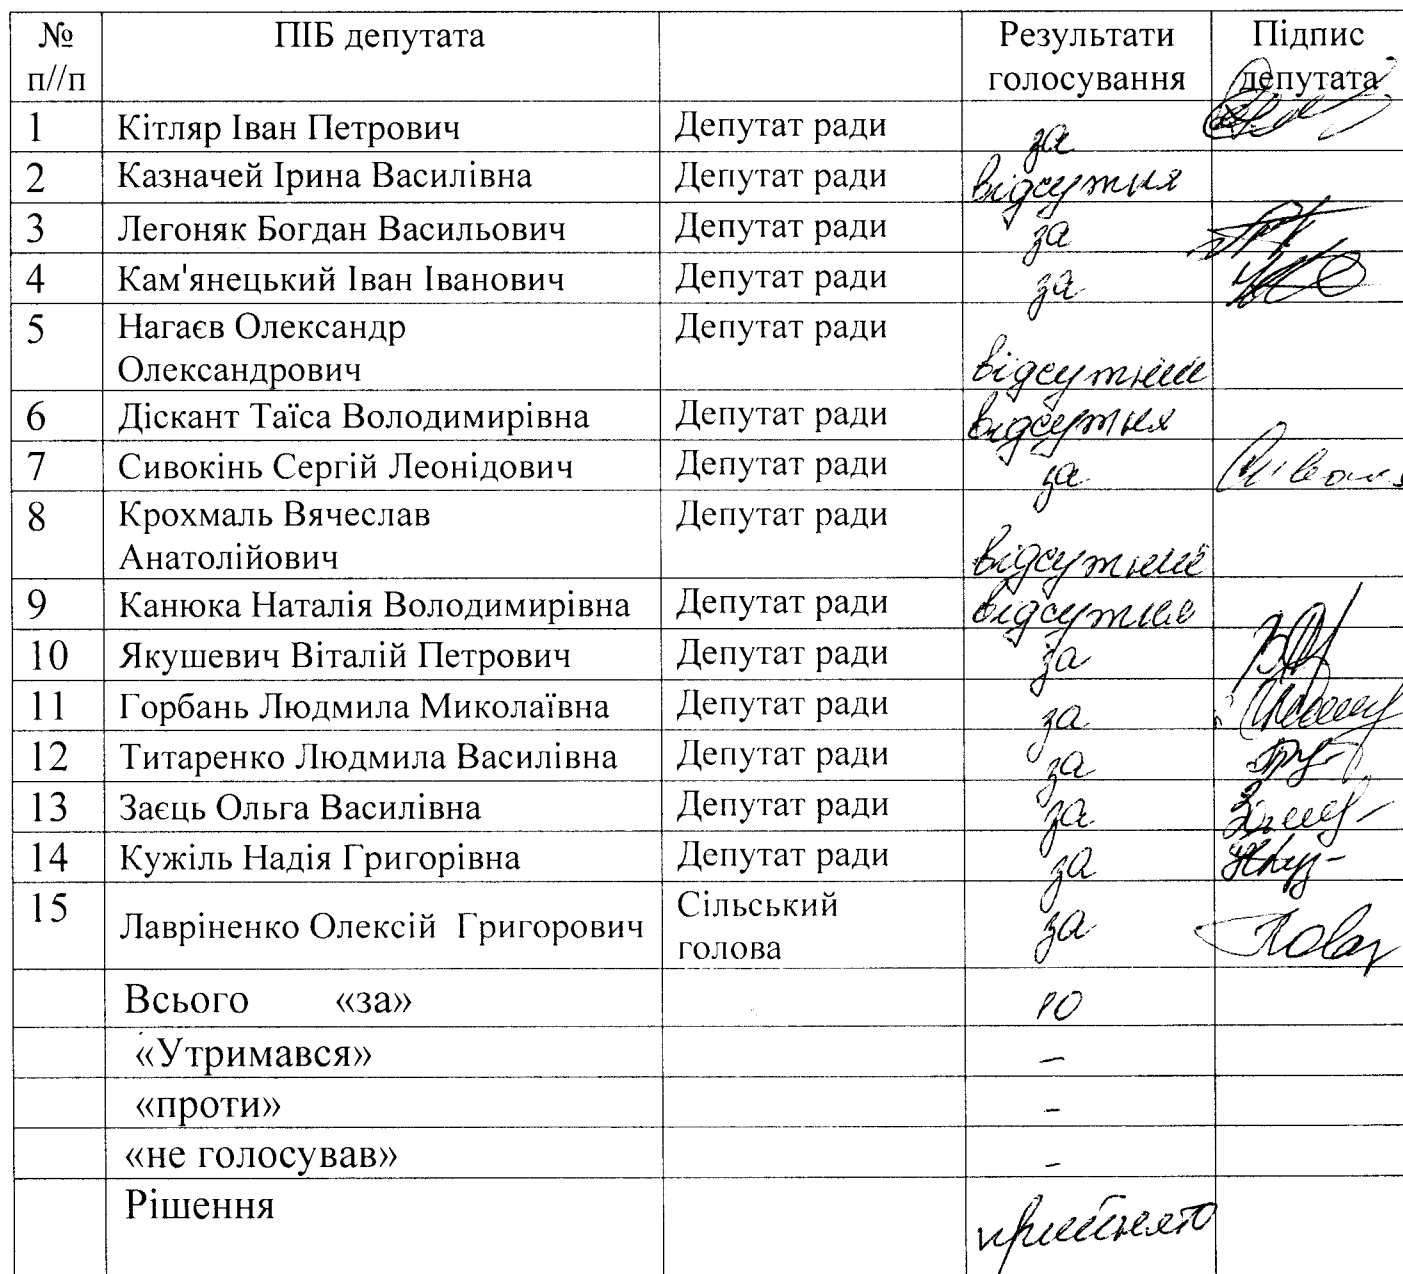 № ПІБ депутата Результати Підпис
п//п голосування депутата
1 Кітляр Іван Петрович Депутат ради за
2 Казначей Ірина Василівна Депутат ради відсутня
3 Легоняк Богдан Васильович Депутат ради за
4 Кам'янецький Іван Іванович Депутат ради за
5 Нагаєв Олександр Депутат ради
Олександрович відсутний
6 Діскант Таїса Володимирівна Депутат ради відсутня
7 Сивокінь Сергій Леонідович Депутат ради за
8 Крохмаль Вячеслав Депутат ради
Анатолійович відсутний
9 Канюка Наталія Володимирівна Депутат ради відсутня
10 Якушевич Віталій Петрович Депутат ради за
11 Горбань Людмила Миколаївна Депутат ради за
12 Титаренко Людмила Василівна Депутат ради за
13 Заєць Ольга Василівна Депутат ради за
14 Кужіль Надія Григорівна Депутат ради за
15 Лавріненко Олексій Григорович Сільський
голова за
Всього «за» 10
«Утримався» –
«проти» –
«не голосував» –
Рішення прийнято